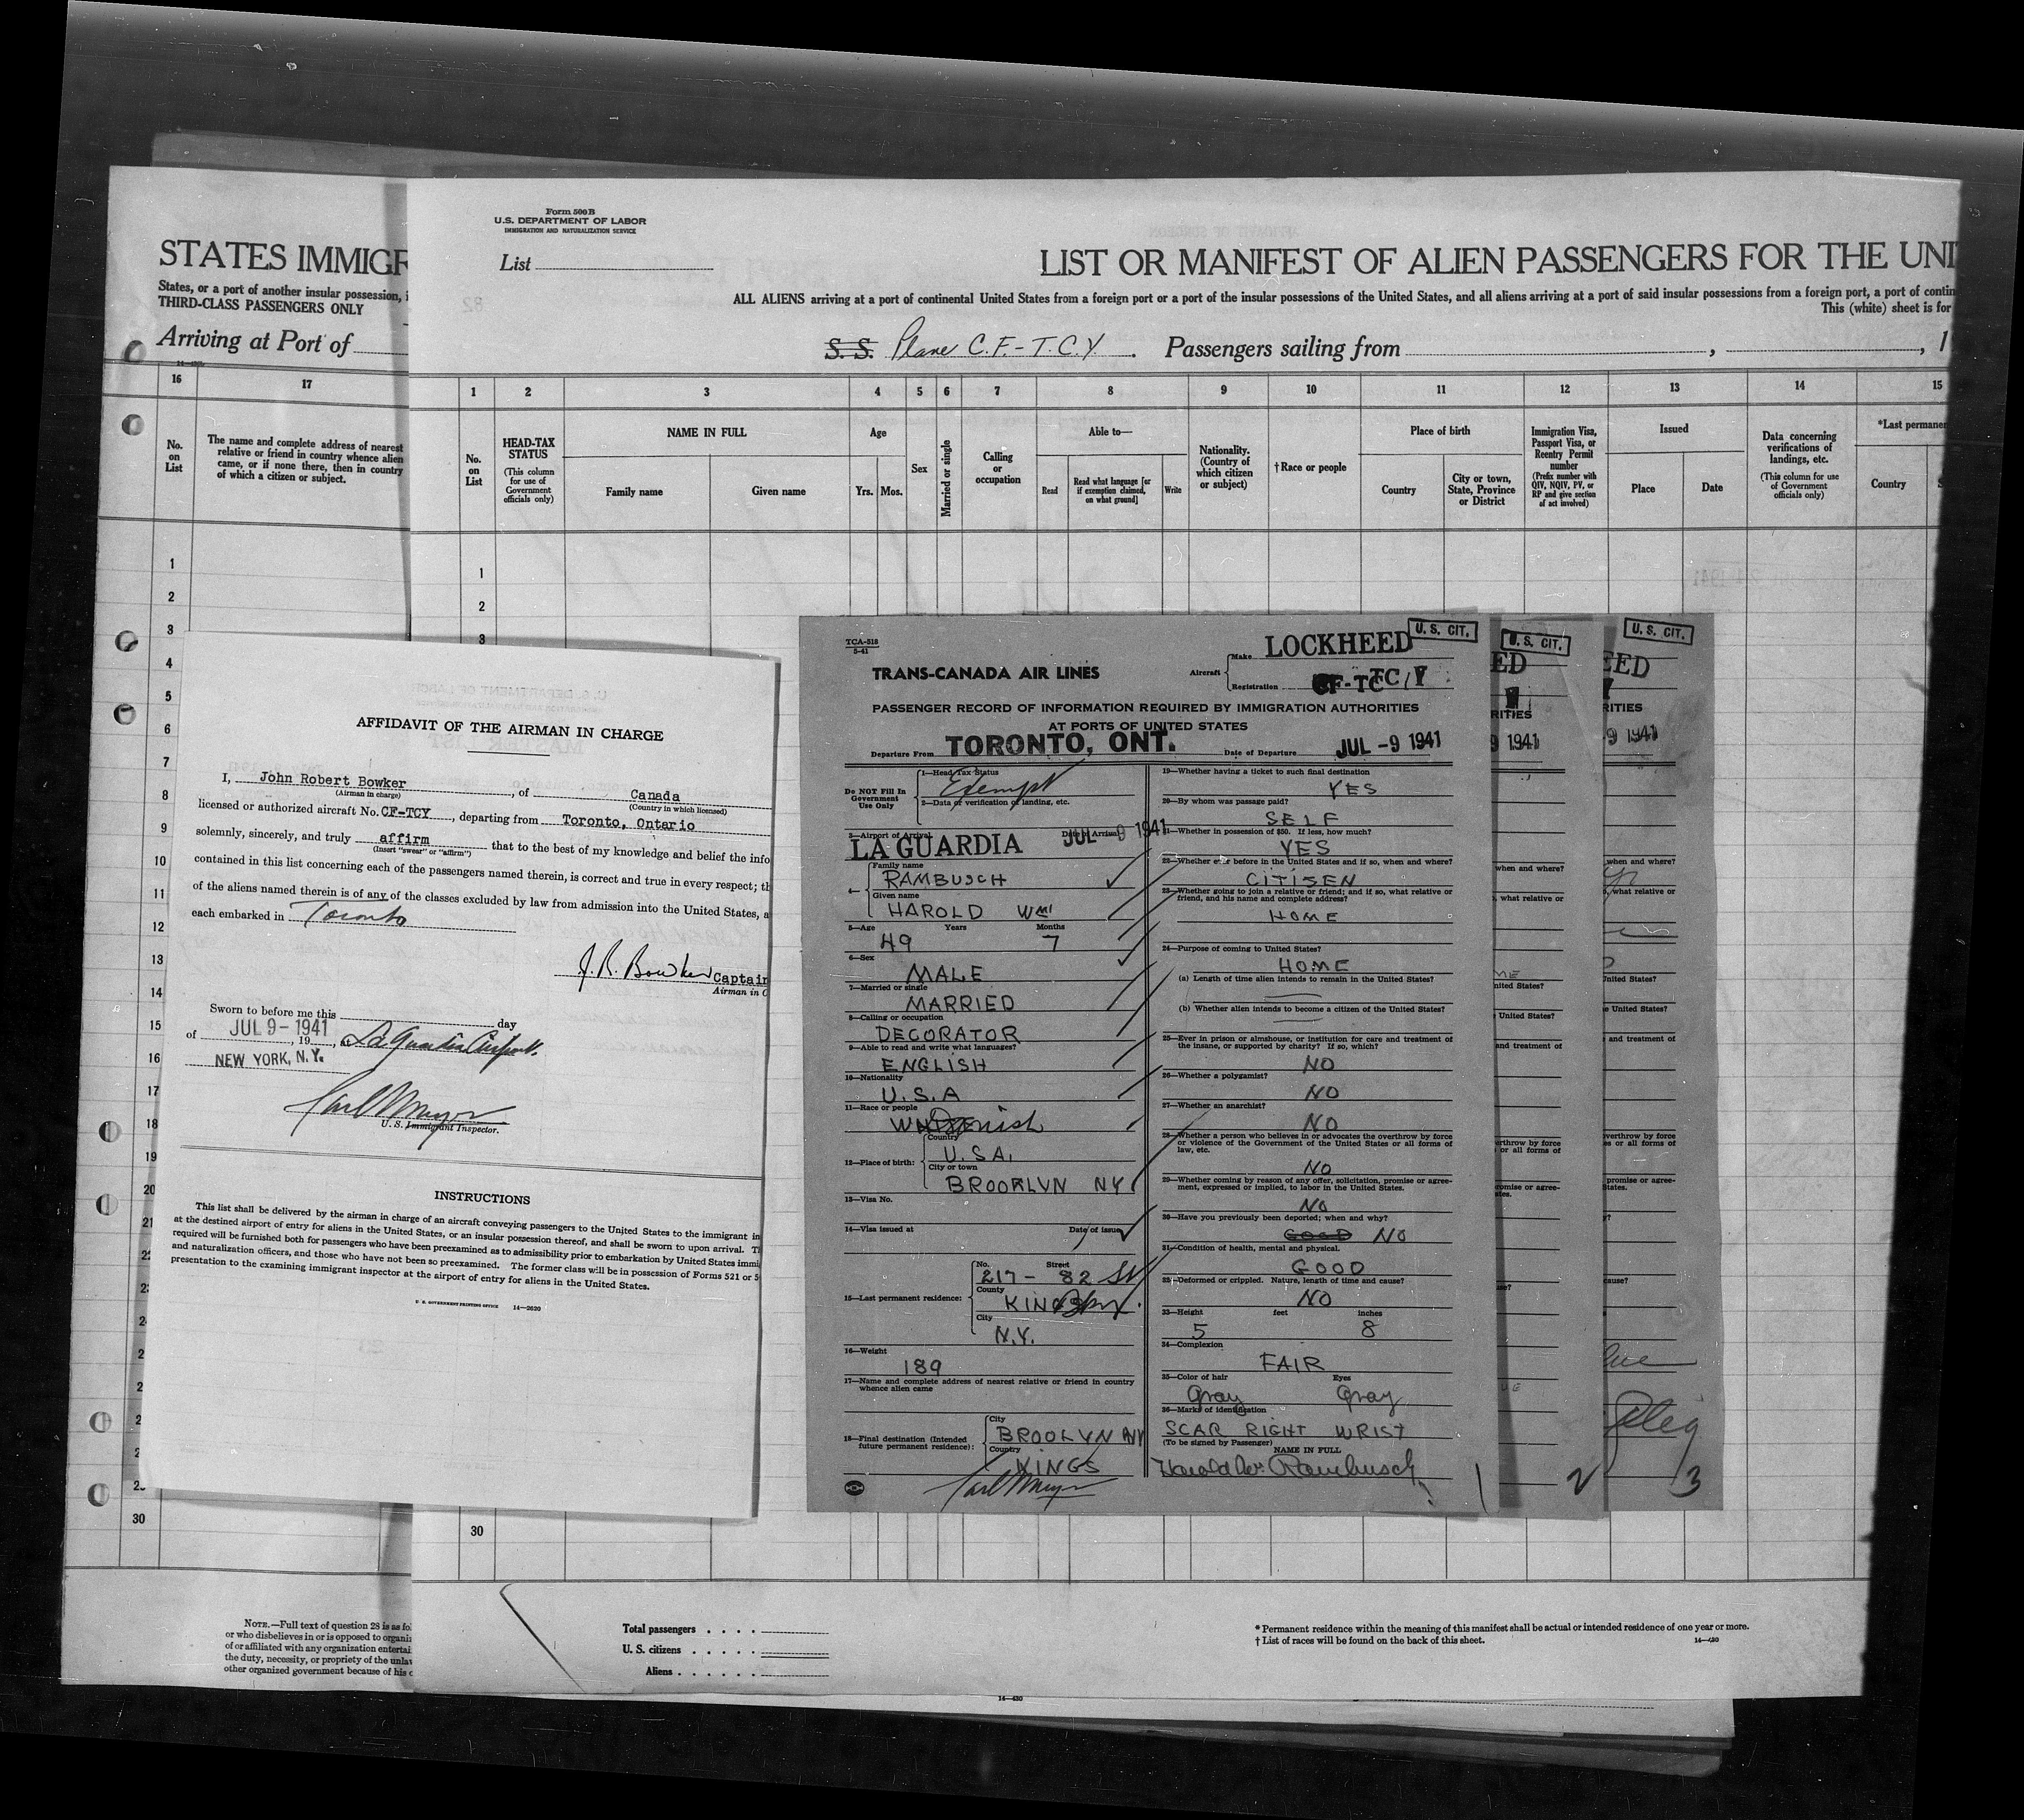 STATES IMMIGR
States, or a port of another insular possession, i
THIRD-CLASS PASSENGERS ONLY
Arriving at Port of
16 17
No. on List
The name and complete address of nearest
relative or friend in country whence alien
came, or if none there, then in country
of which a citizen or subject.
1
2
3
4
5
6
7
8
9
10
11
12
13
14
15
16
17
18
19
20
21
30
NOTE.—Full text of question 28 is as fo
or who disbelieves in or is opposed to organi
of or affiliated with any organization entertai
the duty, necessity, or propriety of the unlaw
other organized government because of his o
Form 500 B
U.S. DEPARTMENT OF LABOR
IMMIGRATION AND NATURALIZATION SERVICE
List
LIST OR MANIFEST OF ALIEN PASSENGERS FOR THE UNI
ALL ALIENS arriving at a port of continental United States from a foreign port or a port of the insular possessions of the United States, and all aliens arriving at a port of said insular possessions from a foreign port, a port of contin
This (white) sheet is for
S.S. Plane C.F.-T.C.Y. Passengers sailing from , , 1
1 2 3 4 5 6 7 8 9 10 11 12 13 14 15
No. on List
HEAD-TAX STATUS
(This column for use of Government officials only)
NAME IN FULL
Family name Given name
Age
Yrs. Mos.
Sex
Married or single
Calling or occupation
Able to—
Read
Read what language [or if exemption claimed, on what ground]
Write
Nationality. (Country of which citizen or subject)
†Race or people
Place of birth
Country
City or town, State, Province or District
Immigration Visa, Passport Visa, or Reentry Permit number
(Prefix number with QIV, NQIV, PV, or RP and give section of act involved)
Issued
Place Date
Data concerning verifications of landings, etc.
(This column for use of Government officials only)
*Last permane
Country
1
2
3
30
Total passengers
U.S. citizens
Aliens
* Permanent residence within the meaning of this manifest shall be actual or intended residence of one year or more.
† List of races will be found on the back of this sheet.
AFFIDAVIT OF THE AIRMAN IN CHARGE
I, John Robert Bowker , of Canada
(Airman in charge) (Country in which licensed)
licensed or authorized aircraft No. CF-TCY , departing from Toronto, Ontario
solemnly, sincerely, and truly affirm that to the best of my knowledge and belief the info
(Insert "swear" or "affirm")
contained in this list concerning each of the passengers named therein, is correct and true in every respect; th
of the aliens named therein is of any of the classes excluded by law from admission into the United States, a
each embarked in Toronto
J. R. Bowker Captain
Airman in C
Sworn to before me this day
of JUL 9 - 1941 , 19 , at La Guardia Airport.
NEW YORK, N.Y.
Carl Meyer
U. S. Immigrant Inspector.
INSTRUCTIONS
This list shall be delivered by the airman in charge of an aircraft conveying passengers to the United States to the immigrant in
at the destined airport of entry for aliens in the United States, or an insular possession thereof, and shall be sworn to upon arrival. T
required will be furnished both for passengers who have been preexamined as to admissibility prior to embarkation by United States immi
and naturalization officers, and those who have not been so preexamined. The former class will be in possession of Forms 521 or 5
presentation to the examining immigrant inspector at the airport of entry for aliens in the United States.
U. S. GOVERNMENT PRINTING OFFICE 14—2620
TCA-518
5-41
U. S. CIT.
TRANS-CANADA AIR LINES
Aircraft Make LOCKHEED
Registration CF-TCY
PASSENGER RECORD OF INFORMATION REQUIRED BY IMMIGRATION AUTHORITIES
AT PORTS OF UNITED STATES
Departure From TORONTO, ONT. Date of Departure JUL -9 1941
Do NOT Fill In Government Use Only
1—Head Tax Status
Exempt
2—Data of verification of landing, etc.
3—Airport of Arrival Date of Arrival
LA GUARDIA JUL 9 1941
4—
Family name
RAMBUSCH
Given name
HAROLD Wm
5—Age Years Months
49 7
6—Sex
MALE
7—Married or single
MARRIED
8—Calling or occupation
DECORATOR
9—Able to read and write what languages?
ENGLISH
10—Nationality
U.S.A
11—Race or people
Danish
12—Place of birth:
Country
U.S.A.
City or town
BROOKLYN NY
13—Visa No.
14—Visa issued at Date of issue
15—Last permanent residence:
No. Street
217 - 82 St
County
KINGS
City
N.Y.
16—Weight
189
17—Name and complete address of nearest relative or friend in country
whence alien came
18—Final destination (Intended future permanent residence):
City
BROOLYN NY
Country
KINGS
Carl Meyer
19—Whether having a ticket to such final destination
YES
20—By whom was passage paid?
SELF
21—Whether in possession of $50. If less, how much?
YES
22—Whether ever before in the United States and if so, when and where?
CITISEN
23—Whether going to join a relative or friend; and if so, what relative or
friend, and his name and complete address?
HOME
24—Purpose of coming to United States?
HOME
(a) Length of time alien intends to remain in the United States?
(b) Whether alien intends to become a citizen of the United States?
25—Ever in prison or almshouse, or institution for care and treatment of
the insane, or supported by charity? If so, which?
NO
26—Whether a polygamist?
NO
27—Whether an anarchist?
NO
28—Whether a person who believes in or advocates the overthrow by force
or violence of the Government of the United States or all forms of
law, etc.
NO
29—Whether coming by reason of any offer, solicitation, promise or agree-
ment, expressed or implied, to labor in the United States.
NO
30—Have you previously been deported; when and why?
GOOD NO
31—Condition of health, mental and physical.
GOOD
32—Deformed or crippled. Nature, length of time and cause?
NO
33—Height feet inches
5 8
34—Complexion
FAIR
35—Color of hair Eyes
Gray Gray
36—Marks of identification
SCAR RIGHT WRIST
(To be signed by Passenger) NAME IN FULL
Harold Wm. Rambusch
1
U. S. CIT.
ED
RITIES
9 1941
when and where?
, what relative or
nited States?
United States?
and treatment of
erthrow by force
or all forms of
romise or agree-
2
U. S. CIT.
EED
RITIES
-9 1941
when and where?
what relative or
United States?
United States?
and treatment of
overthrow by force
or all forms of
promise or agree-
States.
cause?
3
14—430